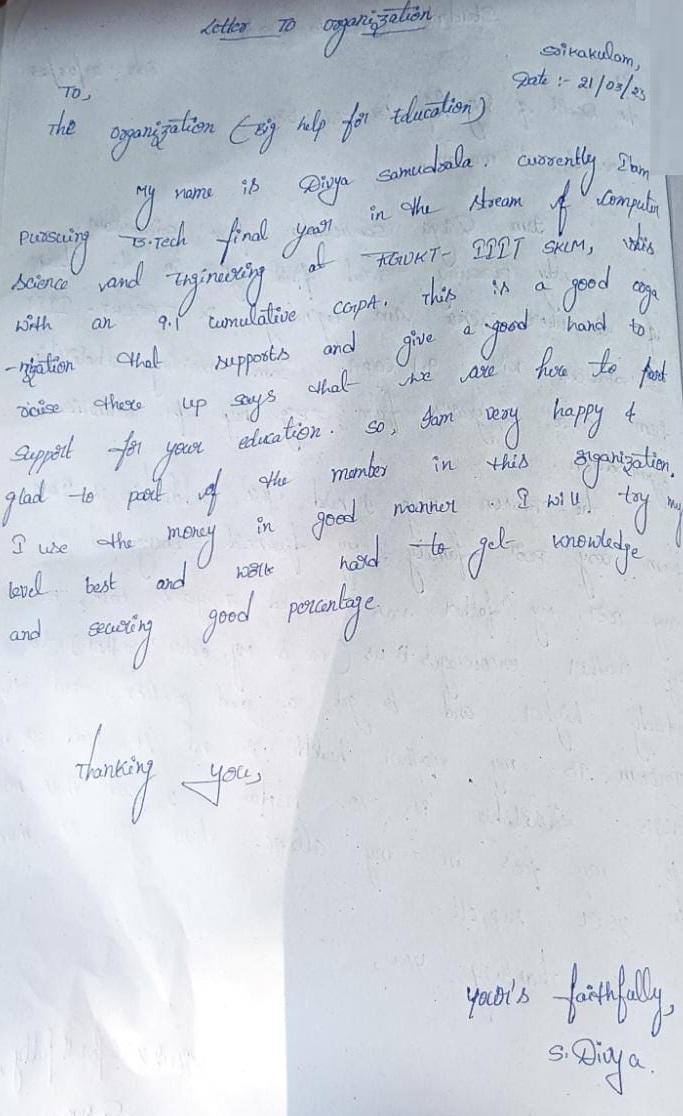 Letter To organization
Srikakulam,
Date :- 21/03/25
To,
The organization (Big help for Education)
My name is Divya Samudrala. Currently I am
Pursuing B.Tech final year in the stream of Computer
Science and Engineering at RGUKT- IIIT SKLM, this
with an 9.1 cumulative CGPA. This is a good orga
-nization that supports and give a good hand to
there up says that we are here to
support for your education. So, I am very happy &
glad to part of the member in this organization.
I use the money in good manner. I will try my
level best and work hard to get knowledge
and securing good percentage
Thanking you,
your's faithfully,
S. Divya.